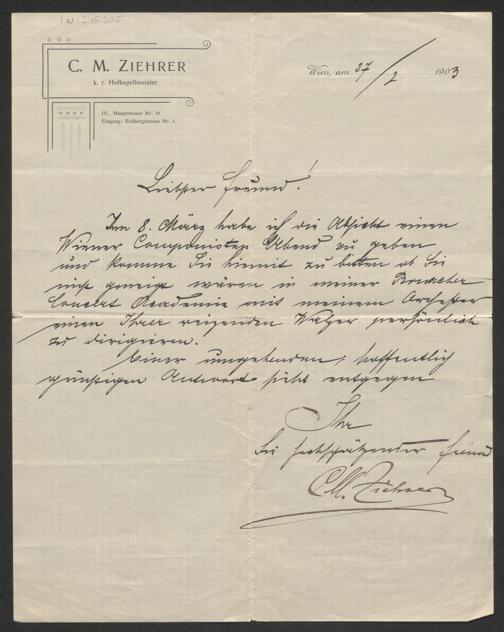 I.N. 215.305
C. M. ZIEHRER
k. k. Hofkapellmeister
III., Hauptstrasse Nr. 10
Eingang: Erdbergstrasse Nr. 1.
Wien, am 27/2 1903
Liebster Freund!
Am 8. März habe ich die Absicht einen
Wiener Componisten Abend zu geben
und komme Sie hiemit zu bitten ob Sie
nicht geneigt wären in meiner Ronacher
Concert Academie mit meinem Orchester
einen Ihrer reizenden Walzer persönlich
zu dirigieren.
Einer umgehenden, hoffentlich
günstigen Antwort sieht entgegen
Ihr
Sie hochschätzender Freund
CM. Ziehrer